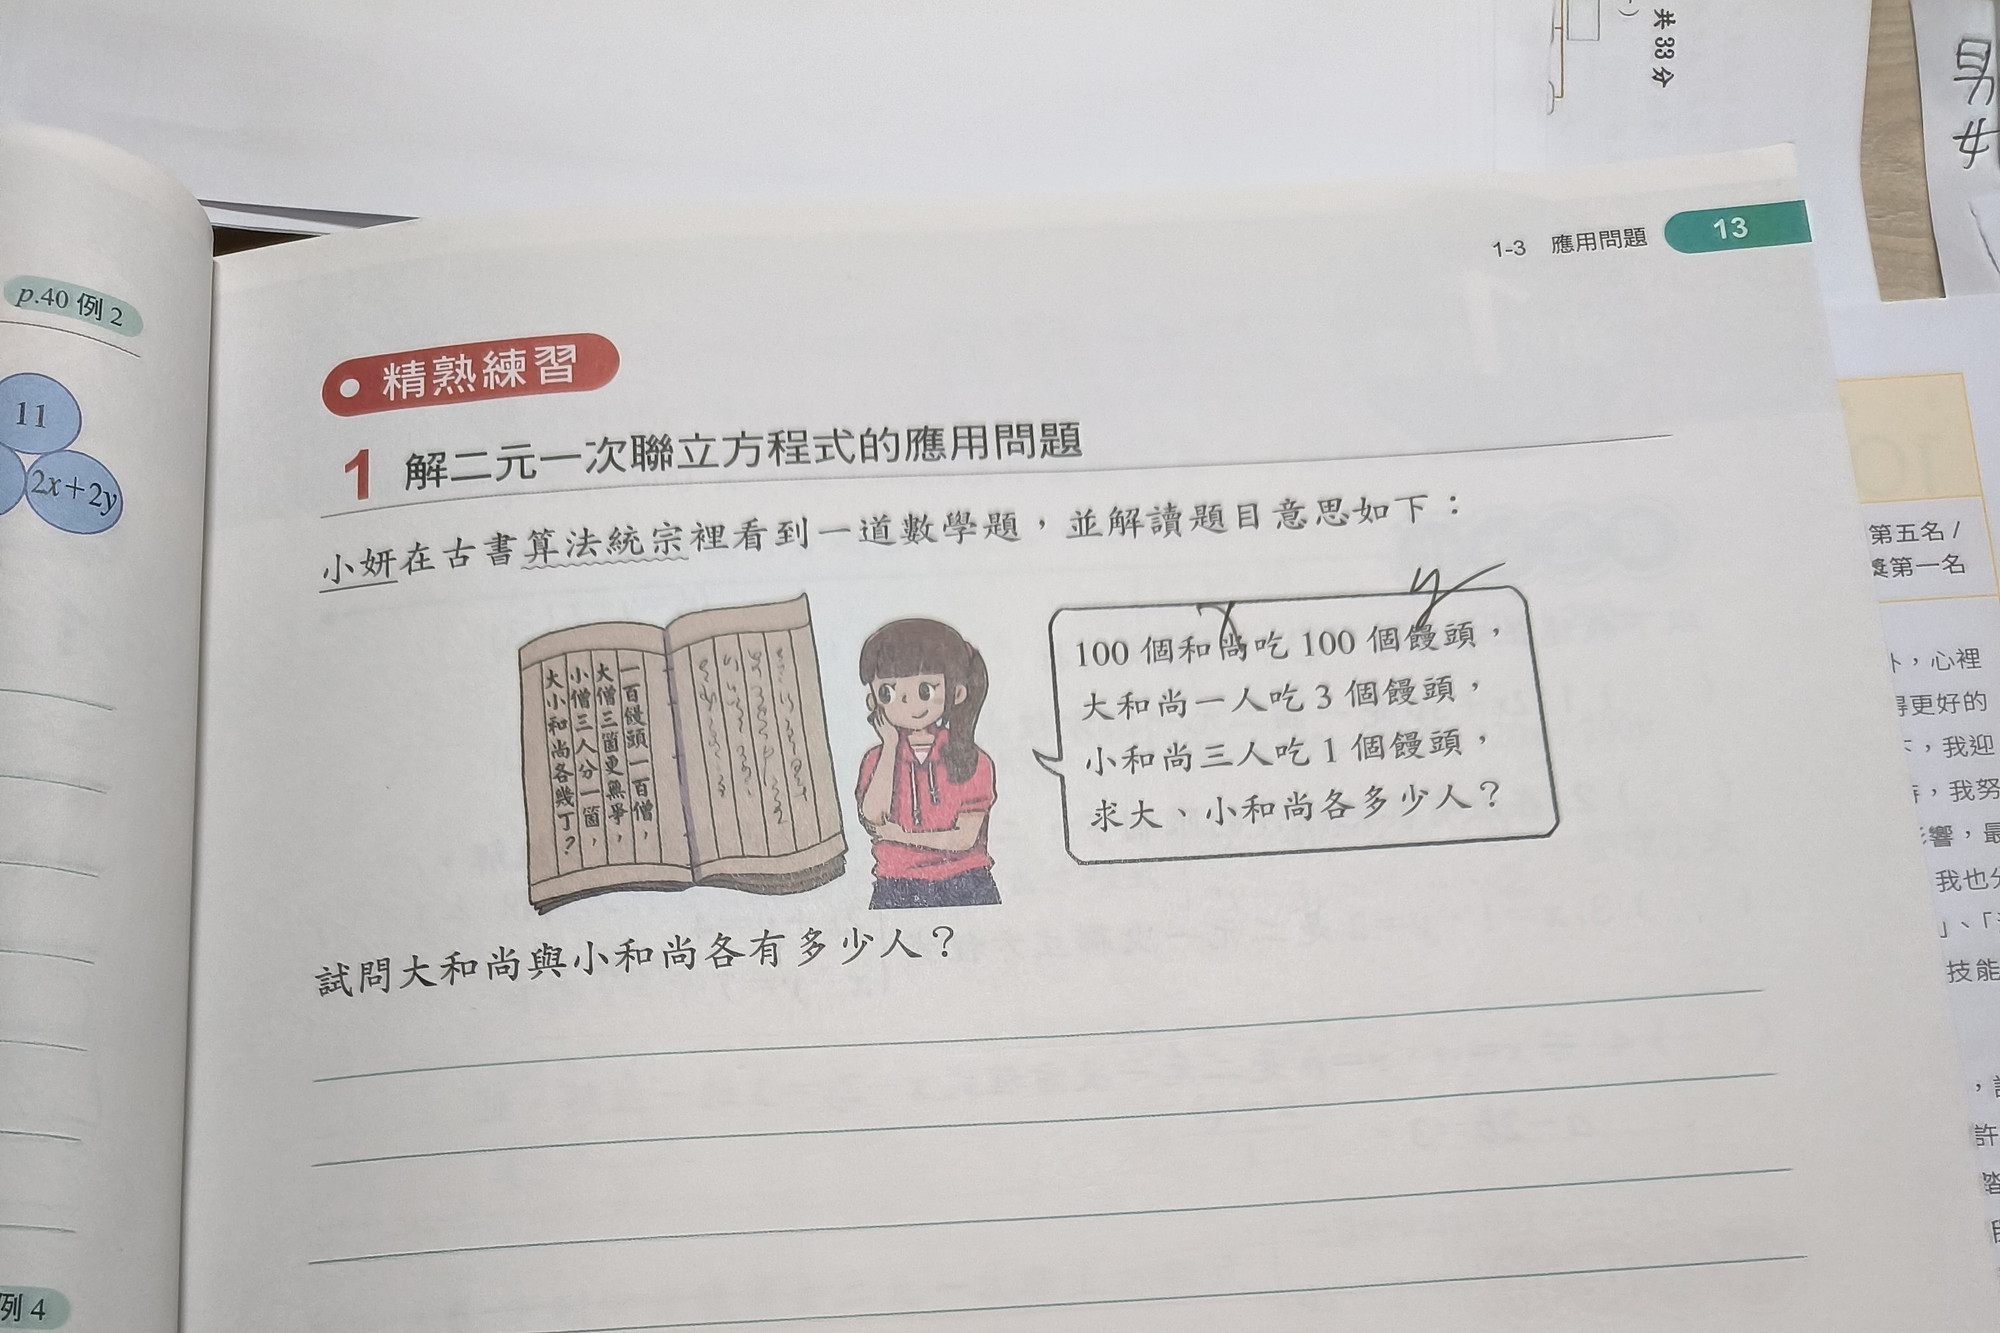 共 33 分
男
女
p.40 例 2
11
2x+2y
例 4
1-3 應用問題 13
精熟練習
1 解二元一次聯立方程式的應用問題
小妍在古書算法統宗裡看到一道數學題，並解讀題目意思如下：
一百饅頭一百僧，
大僧三箇更無爭，
小僧三人分一箇，
大小和尚各幾丁？
x
y
100 個和尚吃 100 個饅頭，
大和尚一人吃 3 個饅頭，
小和尚三人吃 1 個饅頭，
求大、小和尚各多少人？
試問大和尚與小和尚各有多少人？
第五名/
獎第一名
，心裡
得更好的
，我迎
，我努
響，最
我也分
技能
許